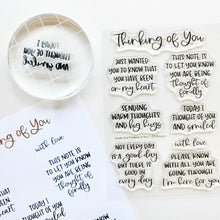 Thinking of You
JUST
WANTED
YOU TO KNOW THAT
YOU HAVE BEEN
on my heart
THIS NOTE IS
TO LET YOU KNOW
YOU ARE BEING
thought of
fondly
SENDING
WARM THOUGHTS
AND big hugs
TODAY I
THOUGHT OF YOU
and smiled
NOT EVERY DAY
IS A good day
BUT THERE IS
GOOD IN
every day
with love
PLEASE KNOW
WITH ALL YOU ARE
GOING THROUGH
I'm here for you
ing of You
with love
THIS NOTE IS
TO LET YOU KNOW
YOU ARE BEING
thought of
fondly
TODAY I
THOUGHT OF YOU
and smiled